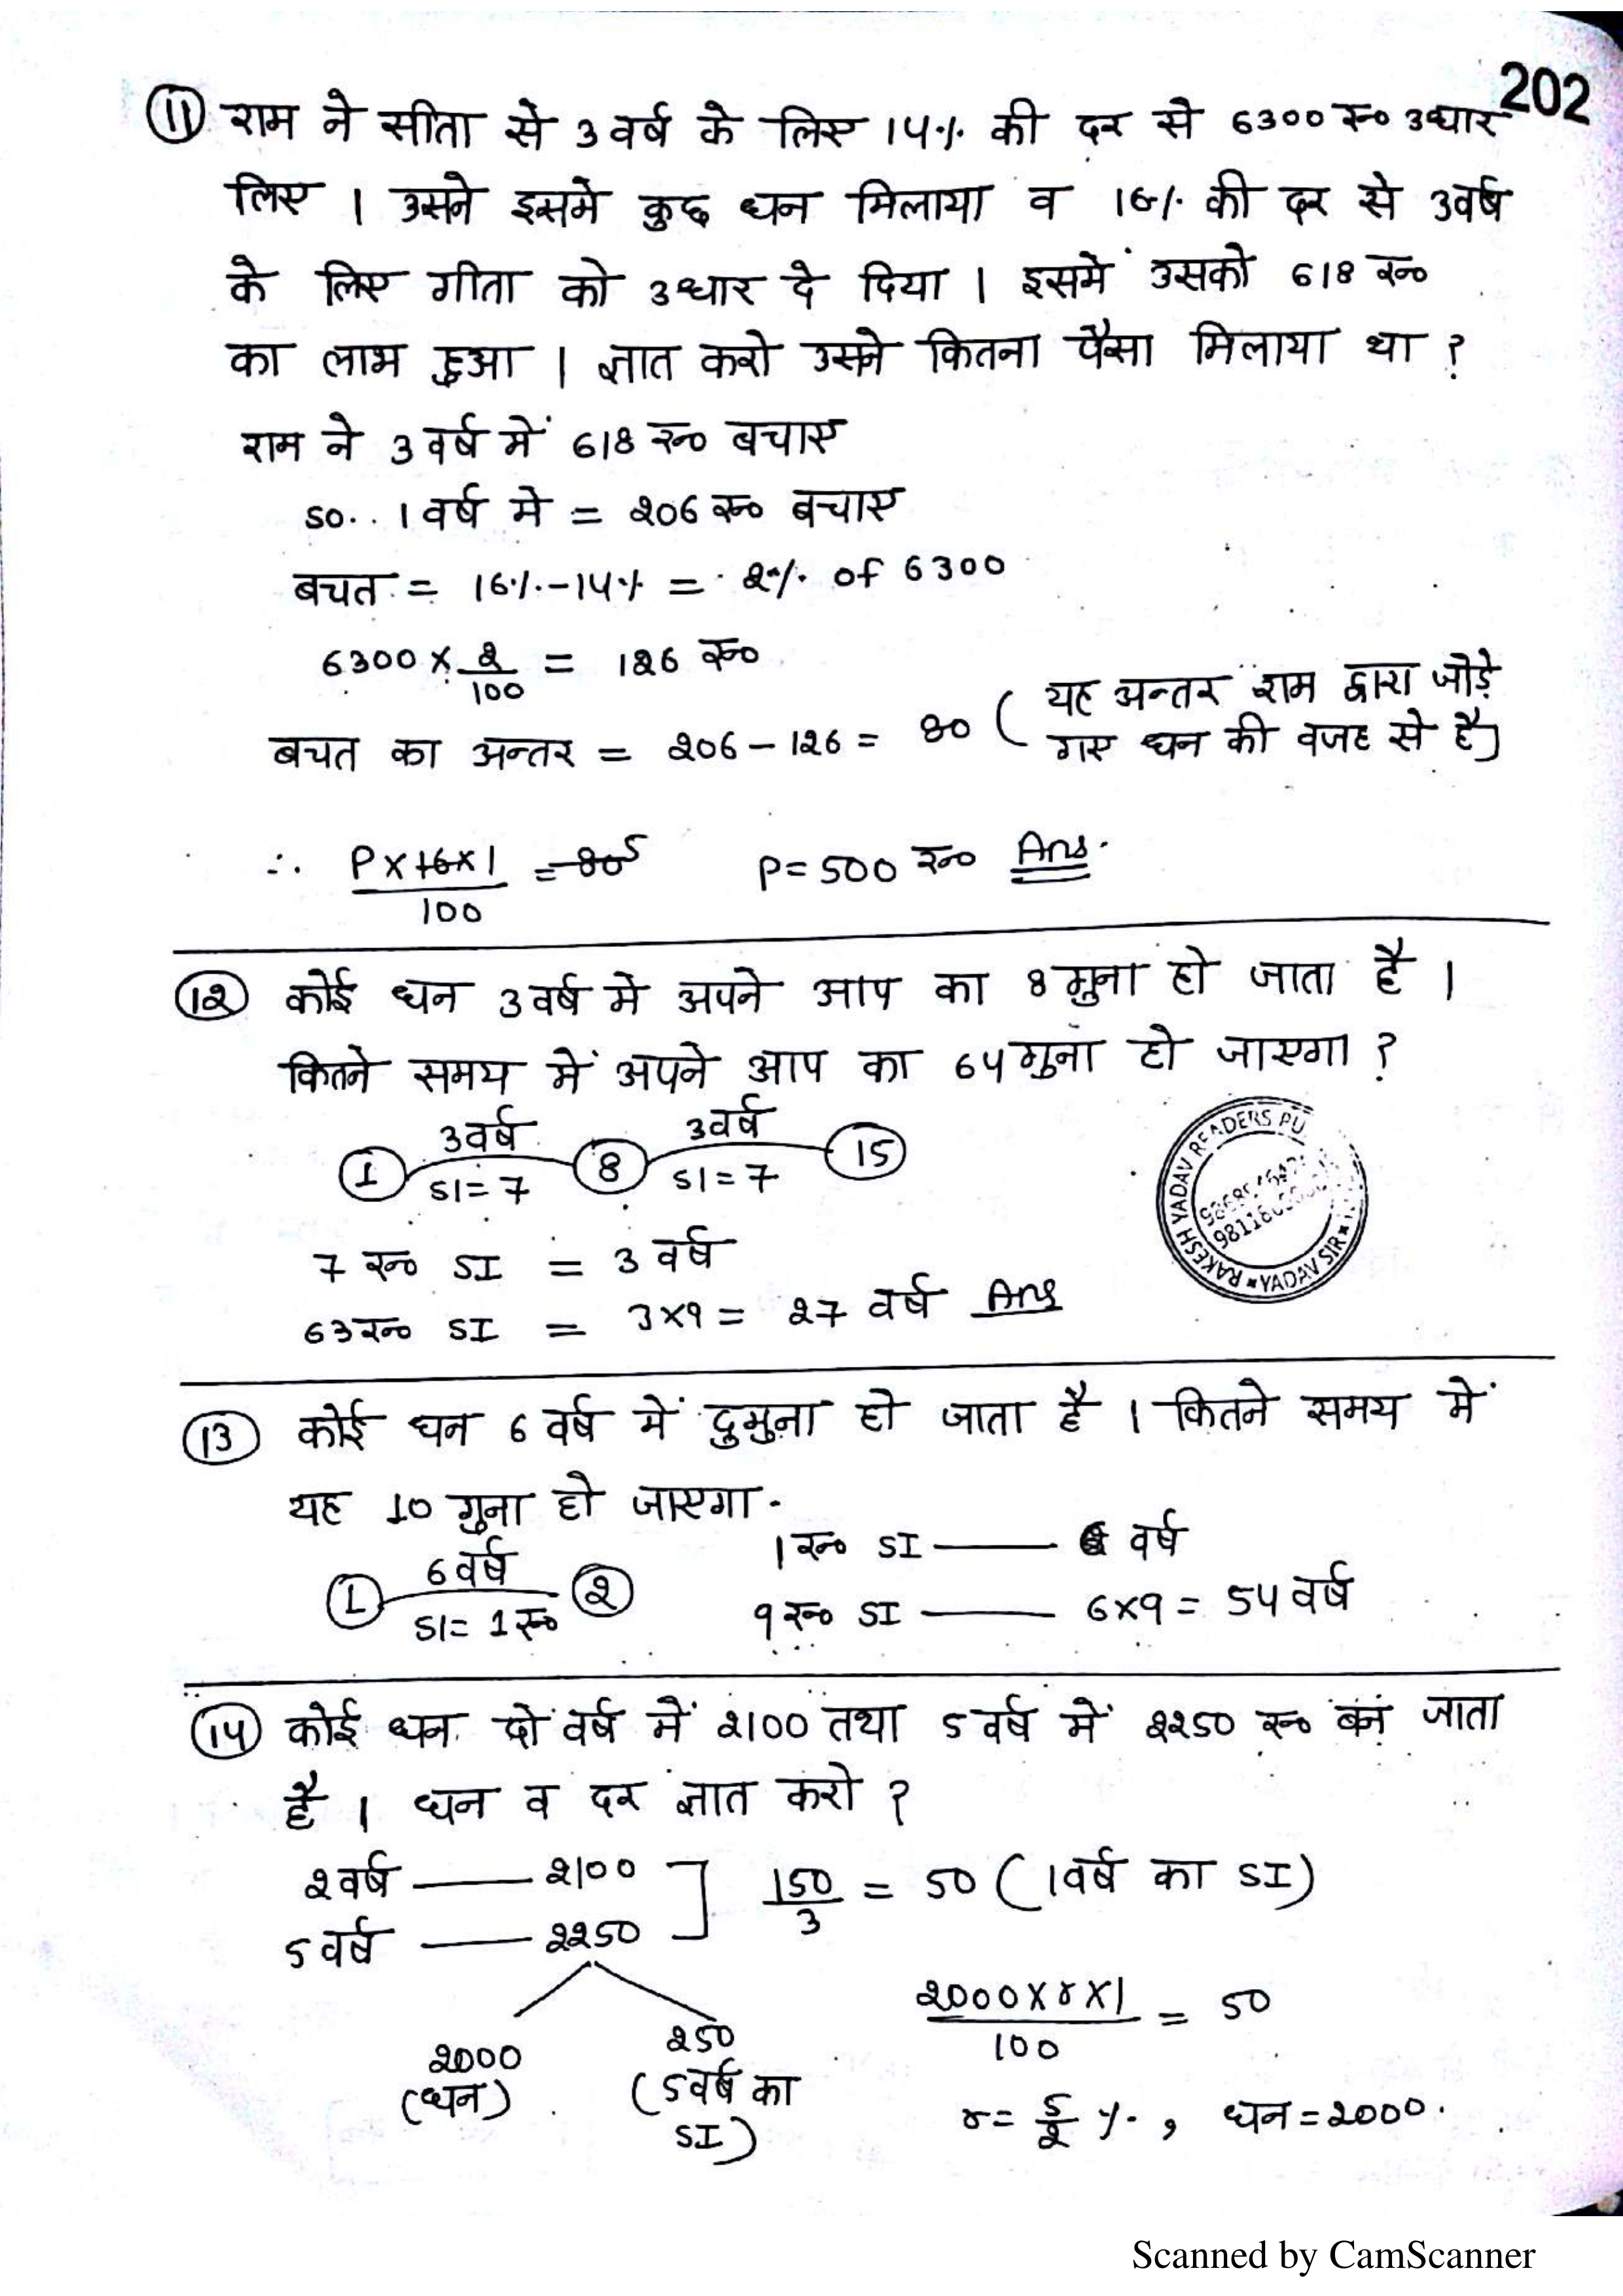 202
(11) राम ने सीता से 3 वर्ष के लिए 14% की दर से 6300 रू० उधार
लिए । उसने इसमे कुछ धन मिलाया व 16% की दर से 3वर्ष
के लिए गीता को उधार दे दिया । इसमें उसको 618 रू०
का लाभ हुआ । ज्ञात करो उसने कितना पैसा मिलाया था ?
राम ने 3 वर्ष में 618 रू० बचाए
so.. 1 वर्ष मे = 206 रू० बचाए
बचत = 16% - 14% = 2% of 6300
6300 × 2/100 = 126 रू०
बचत का अन्तर = 206 - 126 = 80 ( यह अन्तर राम द्वारा जोड़े
गए धन की वजह से है)
∴ P×16×1/100 = 80 5 P = 500 रू० Ans.
(12) कोई धन 3 वर्ष मे अपने आप का 8 गुना हो जाता है ।
कितने समय में अपने आप का 64 गुना हो जाएगा ?
3 वर्ष 3 वर्ष
1 8 15
SI = 7 SI = 7
7 रू० SI = 3 वर्ष
63 रू० SI = 3×9 = 27 वर्ष Ans
RAKESH YADAV READERS PU
YADAV SIR
(13) कोई धन 6 वर्ष में दुगुना हो जाता है । कितने समय में
यह 10 गुना हो जाएगा.
1 रू० SI —— 6 वर्ष
6 वर्ष
1 2
SI = 1 रू०
9 रू० SI —— 6×9 = 54 वर्ष
(14) कोई धन दो वर्ष में 2100 तथा 5 वर्ष में 2250 रू० बन जाता
है । धन व दर ज्ञात करो ?
2 वर्ष —— 2100 ] 150/3 = 50 ( 1 वर्ष का SI )
5 वर्ष —— 2250
2000×r×1/100 = 50
2000 250
(धन) (5 वर्ष का
SI)
r = 5/2 %, धन = 2000.
Scanned by CamScanner